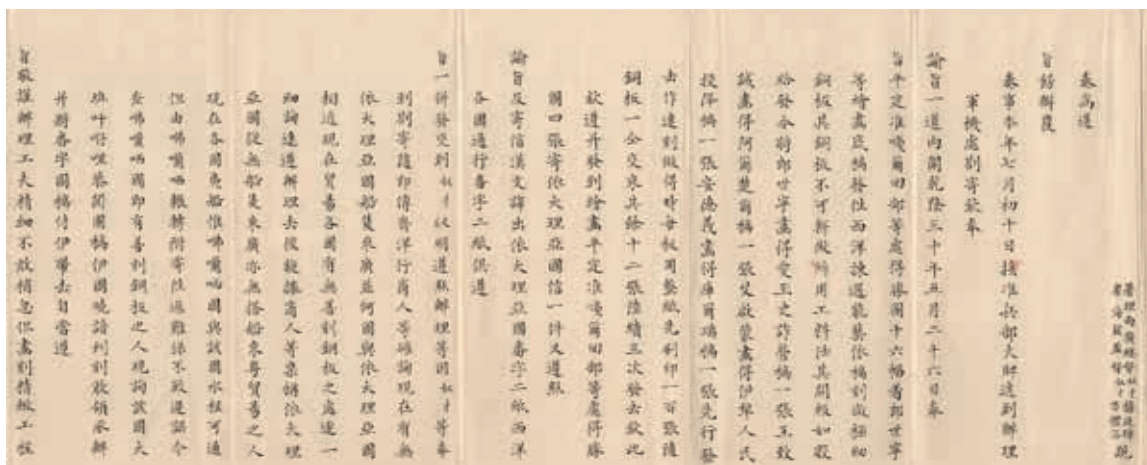 奏為遵
旨籌辦覆
奏事本年七月初十日接准兵部火牌遞到辦理
軍機處劄寄欽奉
諭旨一道內開乾隆三十年五月二十六日奉
旨平定準噶爾回部等處得勝圖十六幅著郎世寧
等繪畫底稿發往西洋揀選能藝依稿刻做極細
銅板其銅板不可輕做所用工料任其開報如數
給發今將郎世寧畫得愛玉史詐營稿一張王致
誠畫得阿爾楚爾稿一張艾啟蒙畫得伊犁人民
投降稿一張安德義畫得庫爾璊稿一張先行發
去作速刻做得時每板用整紙先刷印一百張隨
銅板一分交來其餘十二張陸續三次發去欽此
欽遵并發到繪畫平定準噶爾回部等處得勝
圖四張寄依大理亞國信一件又遵照
諭旨及寄信漢文譯出依大理亞國番字二紙西洋
各國通行番字二紙俱遵
旨一併發交到奴才 明遵照辦理等因奴才等奉
到劄寄隨即傳齊洋行商人等確詢現在有無
依大理亞國船隻來廣並何國與依大理亞國
相近現在貿易各國有無善刻銅板之處逐一
細詢速遵辦理去後旋據商人等稟稱依大理
亞國從無船隻來廣亦無搭船來粵貿易之人
現在各國夷船惟咈囒哂國與該國水程可通
但由咈囒哂 轉附寄往 難保不致遲誤今
查咈囒哂國即有善刻銅板之人現詢該國大
班 哩恭閱圖稿伊國曉諳刊刻敢領承辦
并將番字圖稿付伊帶去自當遵
旨敬謹辦理工夫精細不敢稍忽但畫刻精緻工程